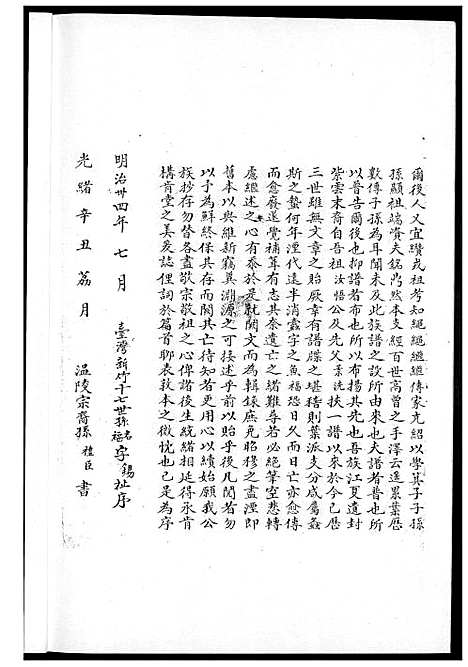 爾後人又宜纘戎祖考知繩繩繼繼傳家克紹以學箕子子孫
孫顯祖端資夫銘乃然本支經百世高曾之手澤云遙累葉歷
數傳子孫為耳聞未及此族譜之設所由來也夫譜者普也所
以普告爾後也抑譜者布也所以布揚其先也吾族江夏遺封
紫雲末裔自吾祖汝悟公及先父素洗挾一譜以來於今已歷
三世雖無文章之貽厥幸有譜牒之堪稽則葉派支分咸屬螽
斯之蟄何年湮代遠半消蠹字之魚福恐日久而日亡亦愈傳
而愈廢遂覺補葺有志其奈遺亡之緒難尋若必絕筆空悲轉
慮繼述之心有忝於是就闕文而為輯錄庶免昭穆之盡湮即
舊本以與維新竊冀淵源之可接述乎前以貽乎後凡閱者勿
以予為鮮終保其存而闕其亡待知者更用心以續始願我公
族抄存勿替各盡敬宗敬祖之心俾諸後生統緒相延得承肯
構肯堂之美爰誌俚詞於篇首聊表敘本之微忱也已是為序
明治卅四年七月 臺灣新竹十七世孫名福字錫祉序
光緒辛丑荔月 溫陵宗裔孫禮臣書